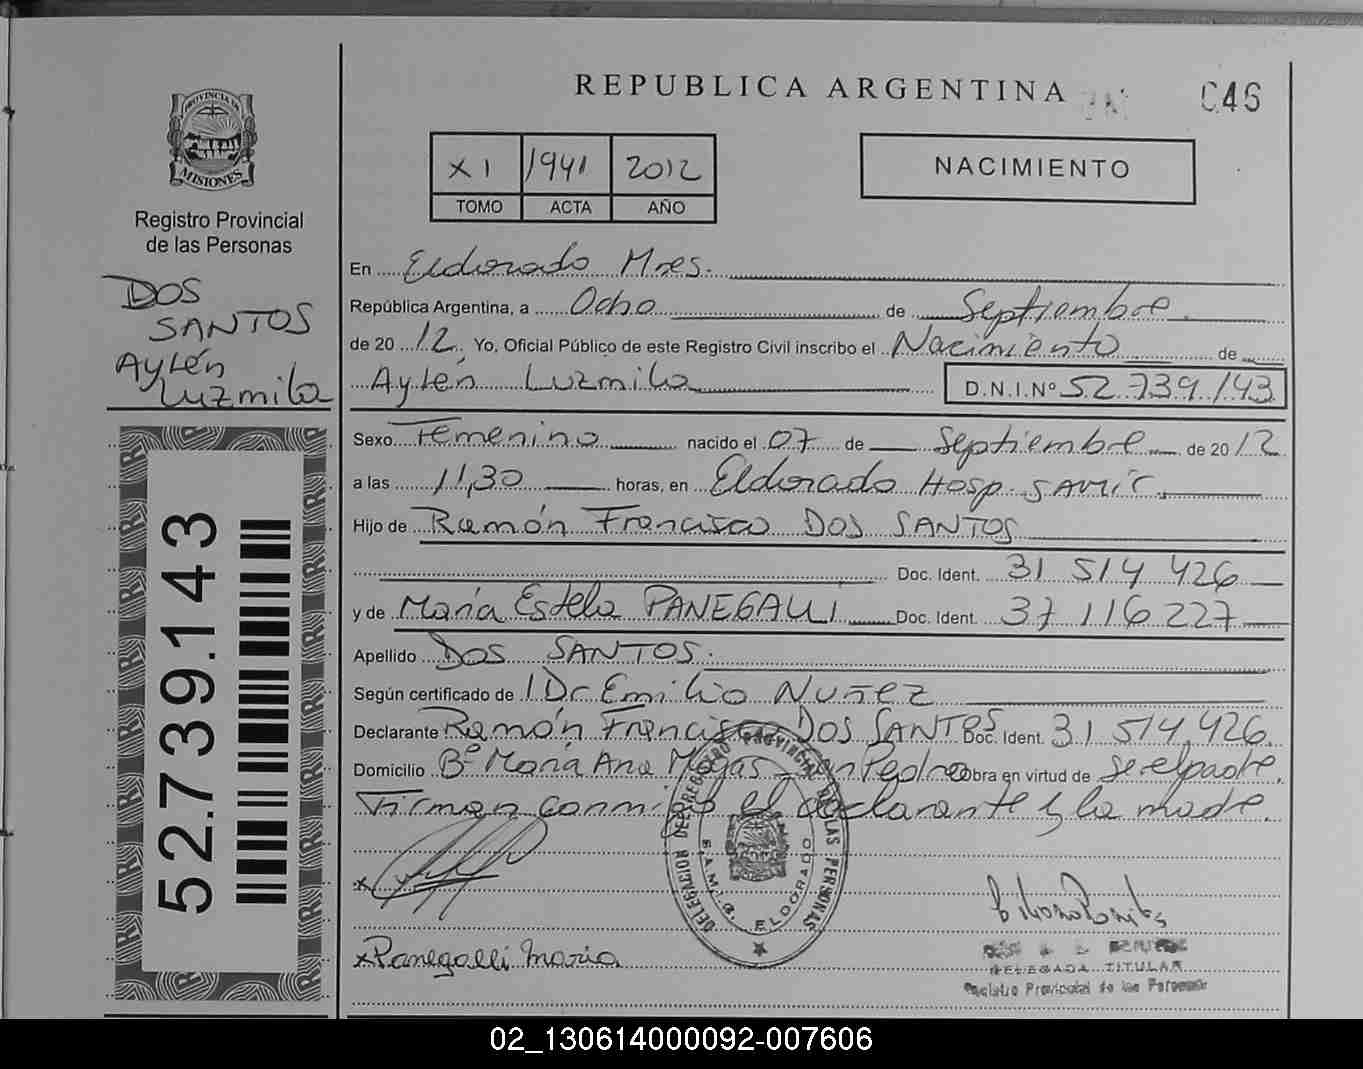 REPUBLICA ARGENTINA
046
PROVINCIA DE
MISIONES
Registro Provincial
de las Personas
DOS
SANTOS
Aylén
Luzmila
52.739.143
XI 1941 2012
TOMO ACTA AÑO
NACIMIENTO
En Eldorado Mnes.
República Argentina, a Ocho de Septiembre
de 20 12 Yo, Oficial Público de este Registro Civil inscribo el Nacimiento de
Aylén Luzmila D.N.I.Nº 52.739.143
Sexo Femenino nacido el 07 de Septiembre de 20 12
a las 11,30 horas, en Eldorado Hosp. SAMIC.
Hijo de Ramón Francisco DOS SANTOS
Doc. Ident. 31 514 426
y de María Estela PANEGALLI Doc. Ident. 37 116 227
Apellido DOS SANTOS.
Según certificado de Dr Emilio Nuñez
Declarante Ramón Francisco DOS SANTOS Doc. Ident. 31 514 426
Domicilio Bº María Ana Mogas San Pedro obra en virtud de ser el padre.
Firman conmigo el declarante y la madre.
DELEGACION DEL REGISTRO PROVINCIAL DE LAS PERSONAS
S.A.M.I.C. ELDORADO
x
x Panegalli Maria
DELEGADA TITULAR
Registro Provincial de las Personas
02_130614000092-007606